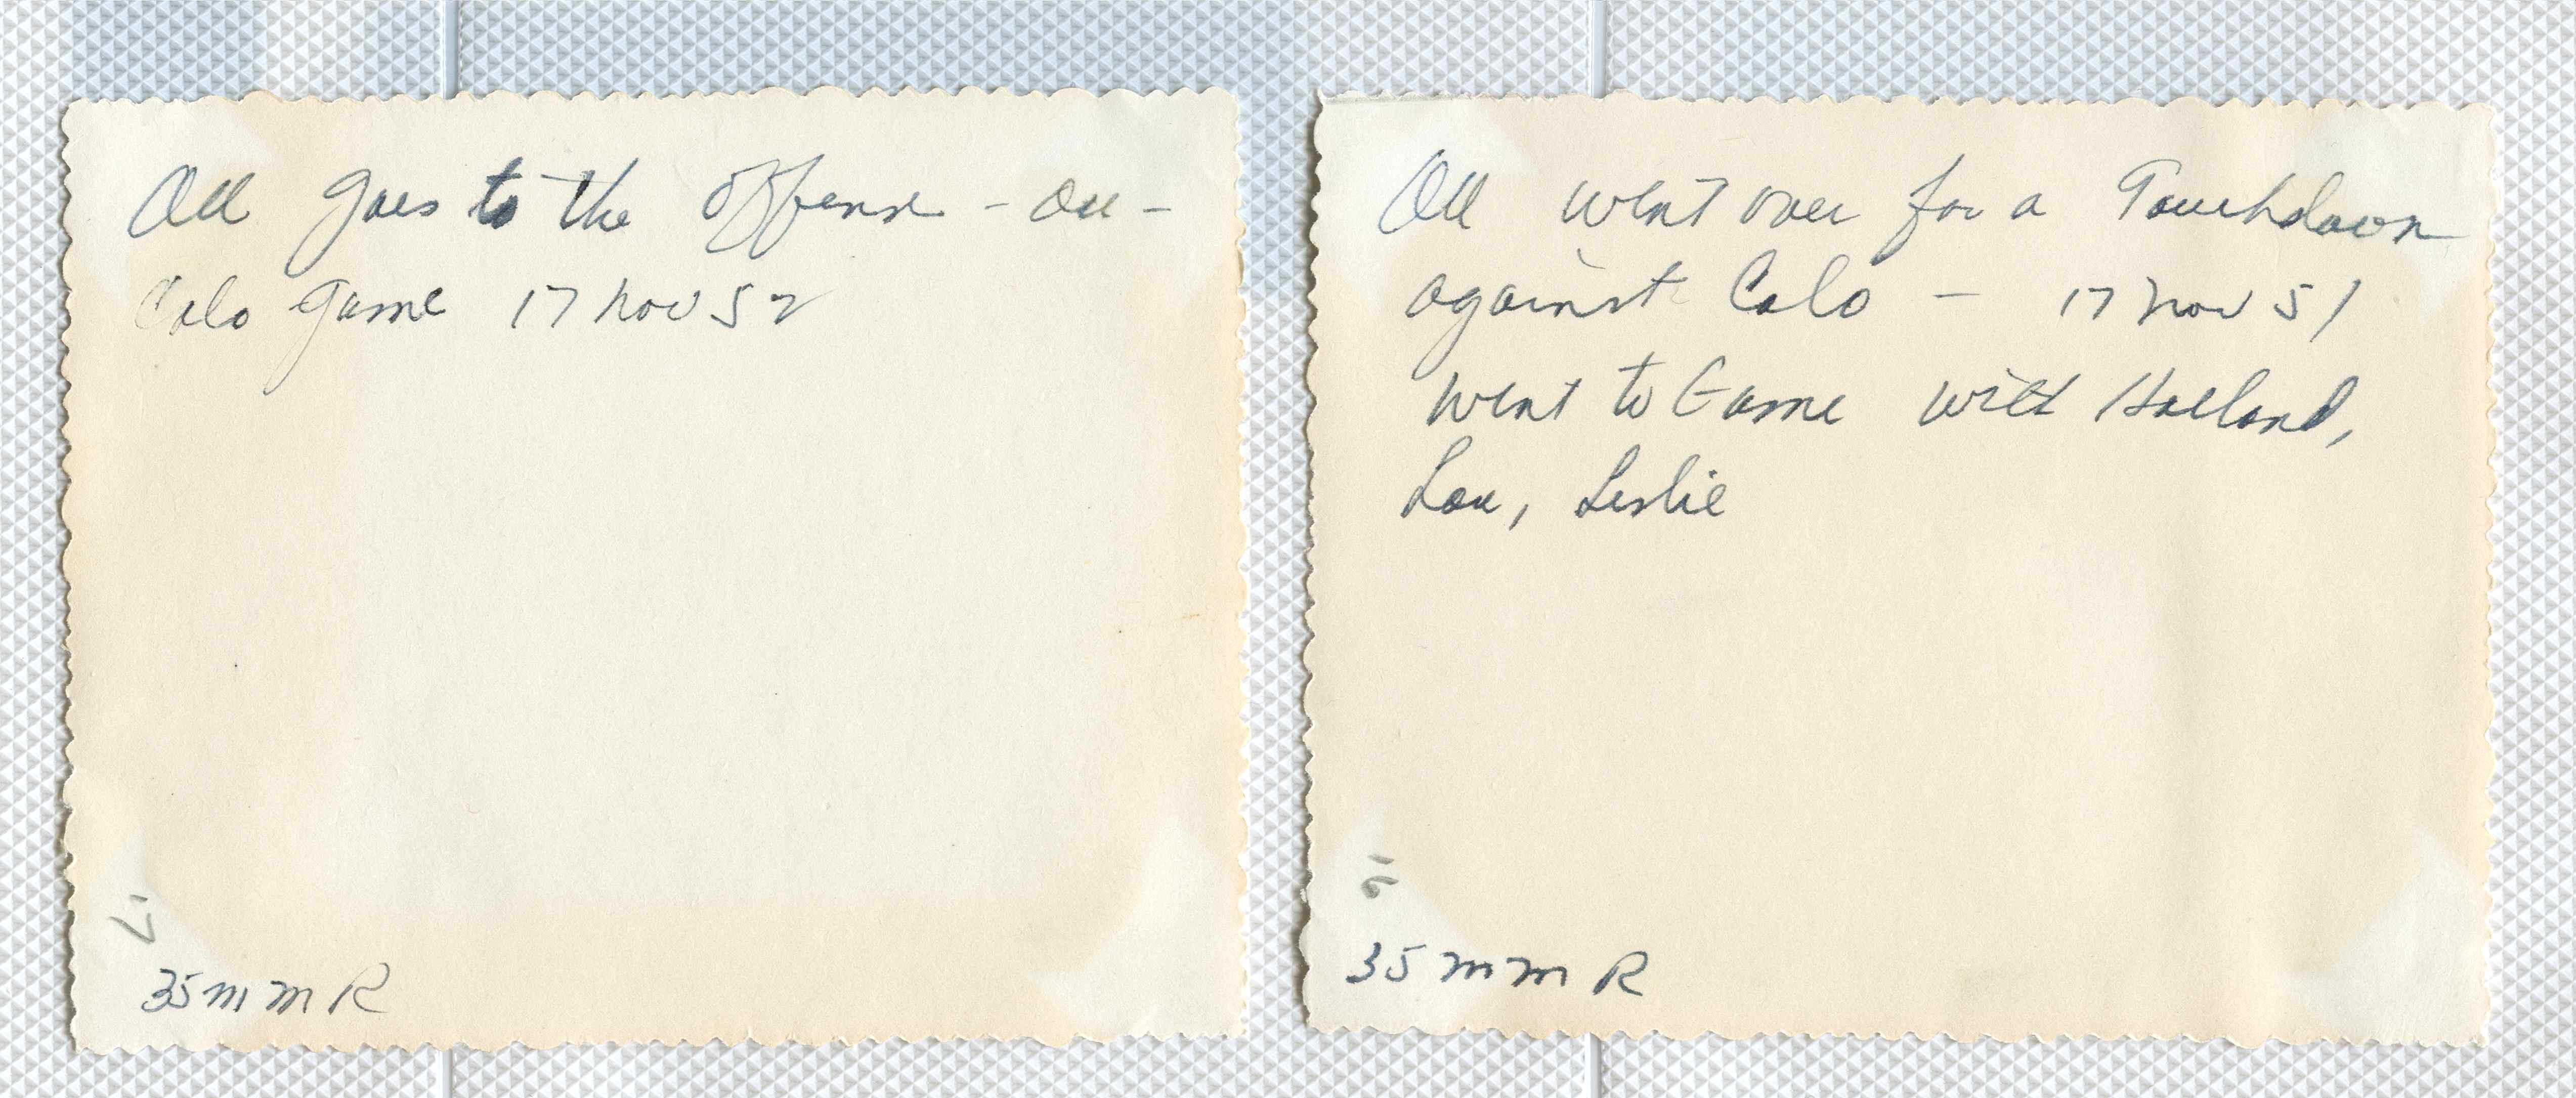 OU goes to the offense - OU -
Colo game 17 Nov 52
35 mm R
OU went over for a Touchdown
against Colo - 17 Nov 51
Went to Game with Holland,
Lou, Leslie
35 mm R